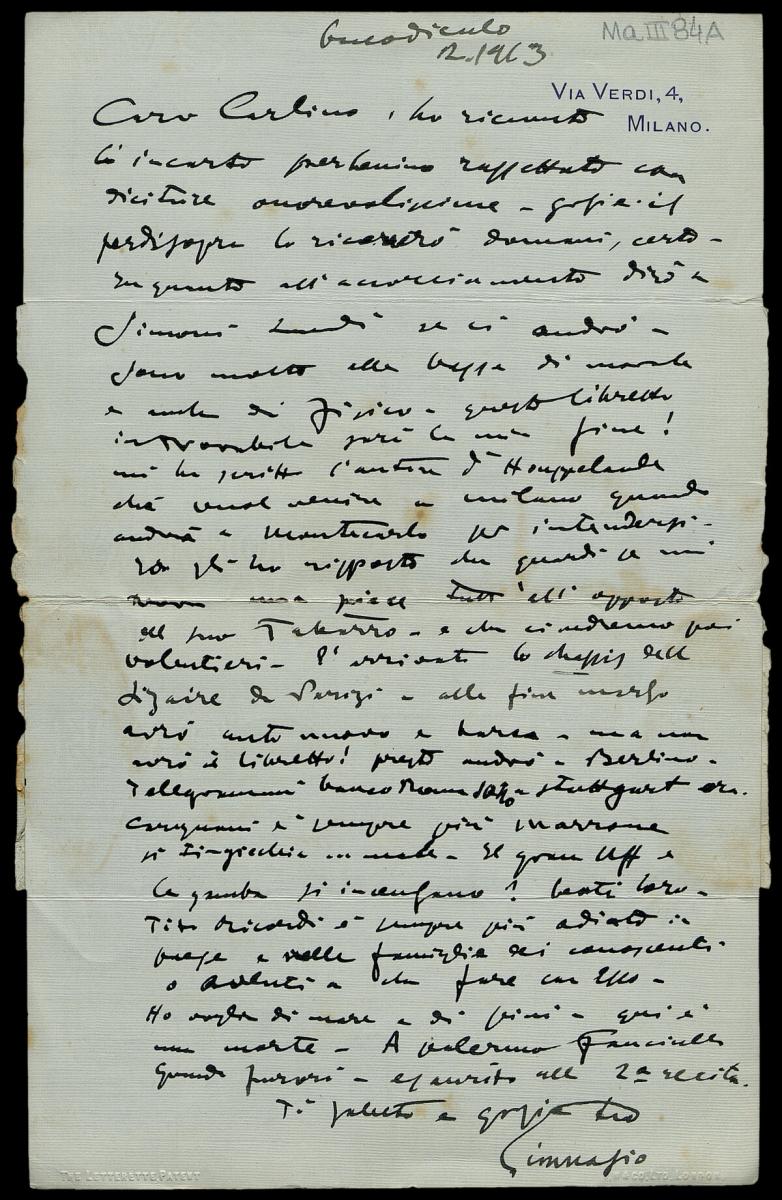 2.1913
Ma III 84A
VIA VERDI, 4,
MILANO.
Caro Carlino, ho ricevuto
l'incarto perbenino raffettato con
diciture onorevolissime - il
perdisopra lo domani, certo -
In quanto all' dirò a
Simoni se ci andrò -
Sono molto alla bassa di morale
e anche di fisico - questo libretto
introvabile sarà la mia fine!
mi ha scritto l'autore d'Houppelande
che vuol venire a milano quando
andrà a Montecarlo per intendersi -
Io gli ho risposto che guardi se mi
trova una pièce tutt'all'opposto
del suo Tabarro - e che ci vedremo poi
volentieri - È arrivato lo chassis della
Lizaire da Parigi - alla fine marzo
avrò auto nuovo e barca - ma non
avrò il libretto! presto andrò a Berlino -
Telegrammi a Stuttgart
Carignani è sempre più marrone
si male - Il gran Uff e
la gamba si incensano! beati loro -
Tito Ricordi è sempre più odiato in
paese e nelle famiglie dei conoscenti
o aventi a che fare con Esso -
Ho voglia di mare e di pini - qui è
una morte - A palermo Fanciulla
grande furori - esaurito alla 2ª recita.
Ti saluto e tuo
THE LETTERETTE PATENT
& CO. LTD. LONDON